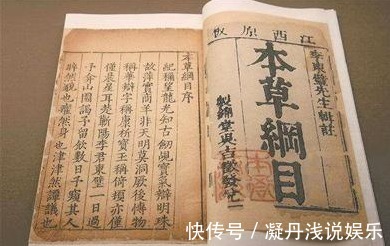 江西原板
李東璧先生輯註
本草綱目
本草綱目序
紀稱望龍光知古劍覘寶氣辨明珠
故萍實商羊非天明莫洞厥後博物
稱華辯字稱康析寶玉稱倚頓亦僅
僅晨星耳楚蘄陽李君東璧一日過
予弇山園謁予留飲數日予窺其人
睟然貌也癯然身也津津然譚議也
快传号 / 凝丹浅说娱乐